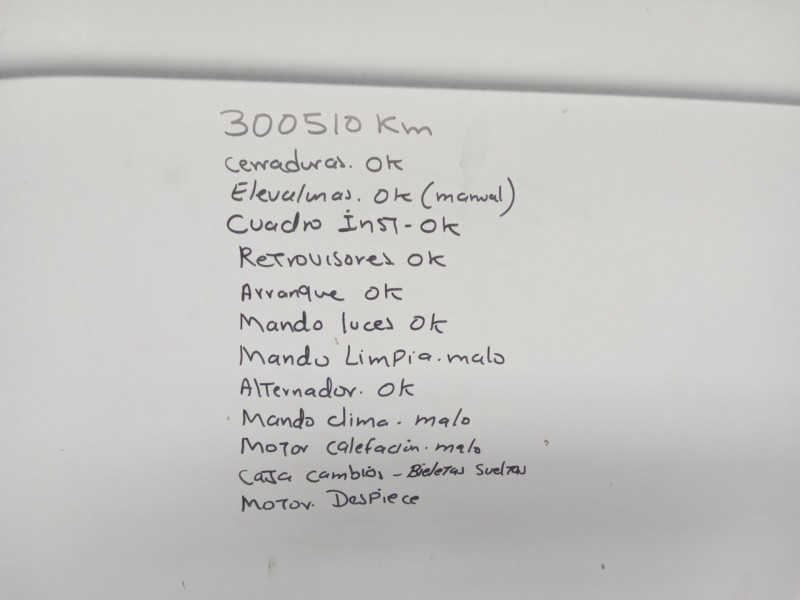 300510 Km
Cerraduras. OK
Elevalunas. OK (manual)
Cuadro inst - OK
Retrovisores OK
Arranque OK
Mando luces OK
Mando Limpia. malo
Alternador. OK
Mando clima. malo
Motor calefación. malo
Caja cambios - Bieletas sueltas
Motor. Despiece